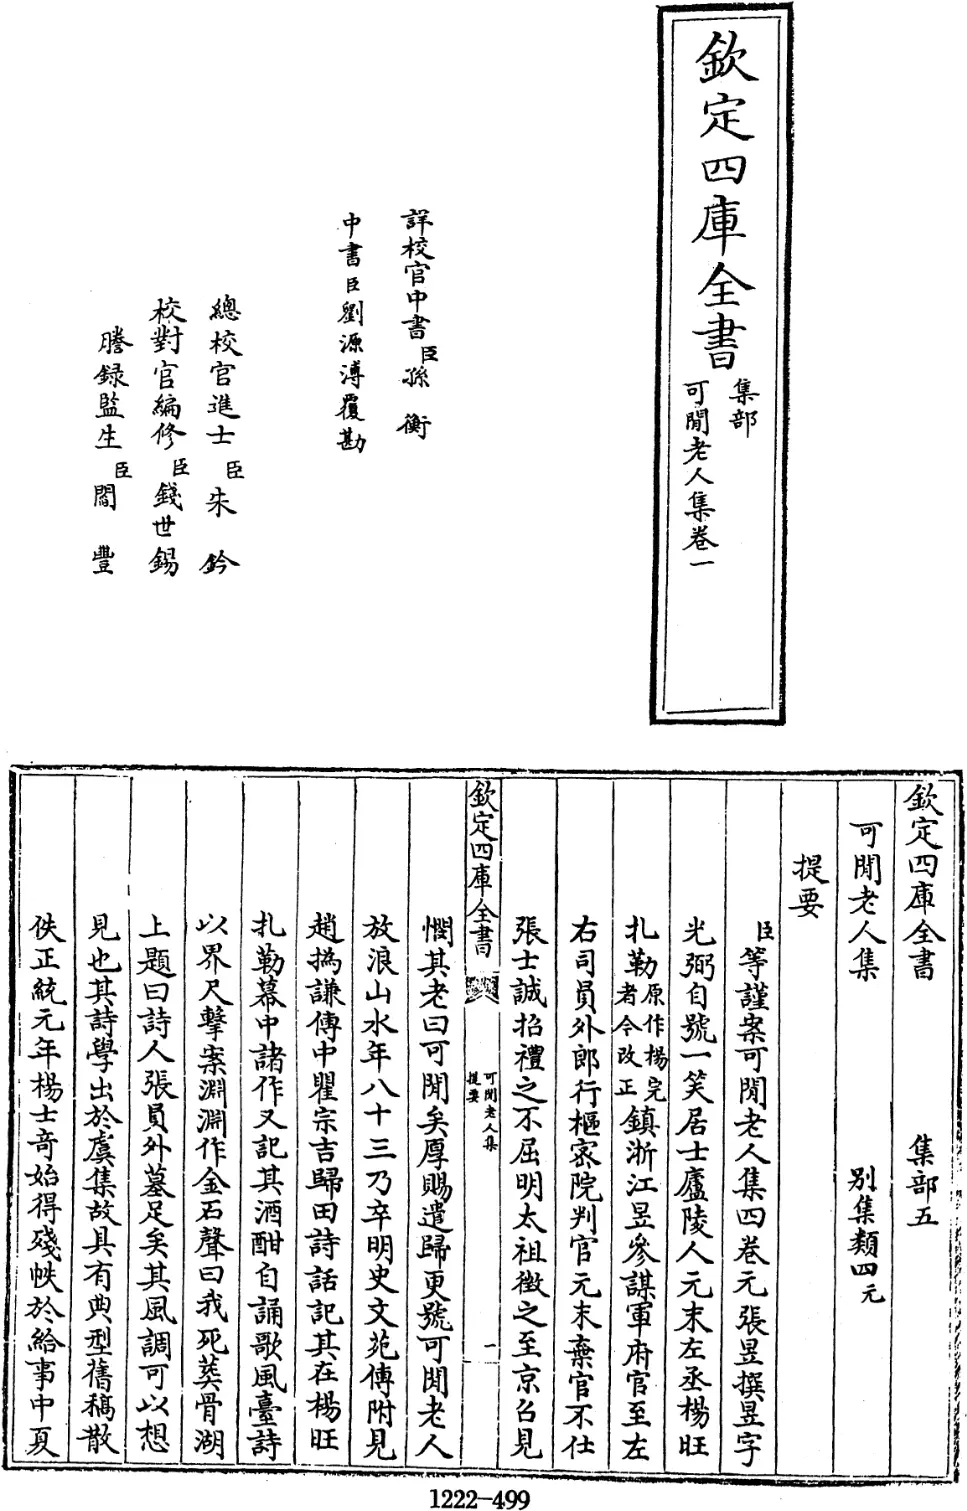 欽定四庫全書
集部
可閒老人集卷一
詳校官中書臣孫衡
中書臣劉源溥覆勘
總校官進士臣朱鈐
校對官編修臣錢世錫
謄録監生臣閻豐
欽定四庫全書 集部五
可閒老人集 别集類四元
提要
臣等謹案可閒老人集四卷元張昱撰昱字
光弼自號一笑居士廬陵人元末左丞楊旺
扎勒原作楊完者今改正鎮浙江昱參謀軍府官至左
右司員外郎行樞宻院判官元末棄官不仕
張士誠招禮之不屈明太祖徴之至京召見
欽定四庫全書 可閒老人集 提要 一
憫其老曰可閒矣厚賜遣歸更號可閒老人
放浪山水年八十三乃卒明史文苑傳附見
趙撝謙傳中瞿宗吉歸田詩話記其在楊旺
扎勒幕中諸作又記其酒酣自誦歌風臺詩
以界尺擊案淵淵作金石聲曰我死葬骨湖
上題曰詩人張員外墓足矣其風調可以想
見也其詩學出於虞集故具有典型舊稿散
佚正統元年楊士竒始得殘帙於給事中夏
1222-499